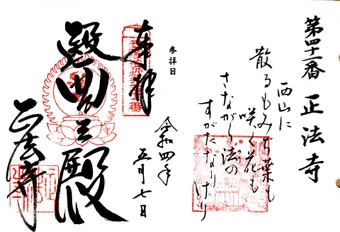 第四十一番 正法寺
西山に
散るもみぢ葉も
咲く花も
さながら法の
すがたなりけり
参拝日
令和四年
五月七日
奉拝
遍照殿
正法寺